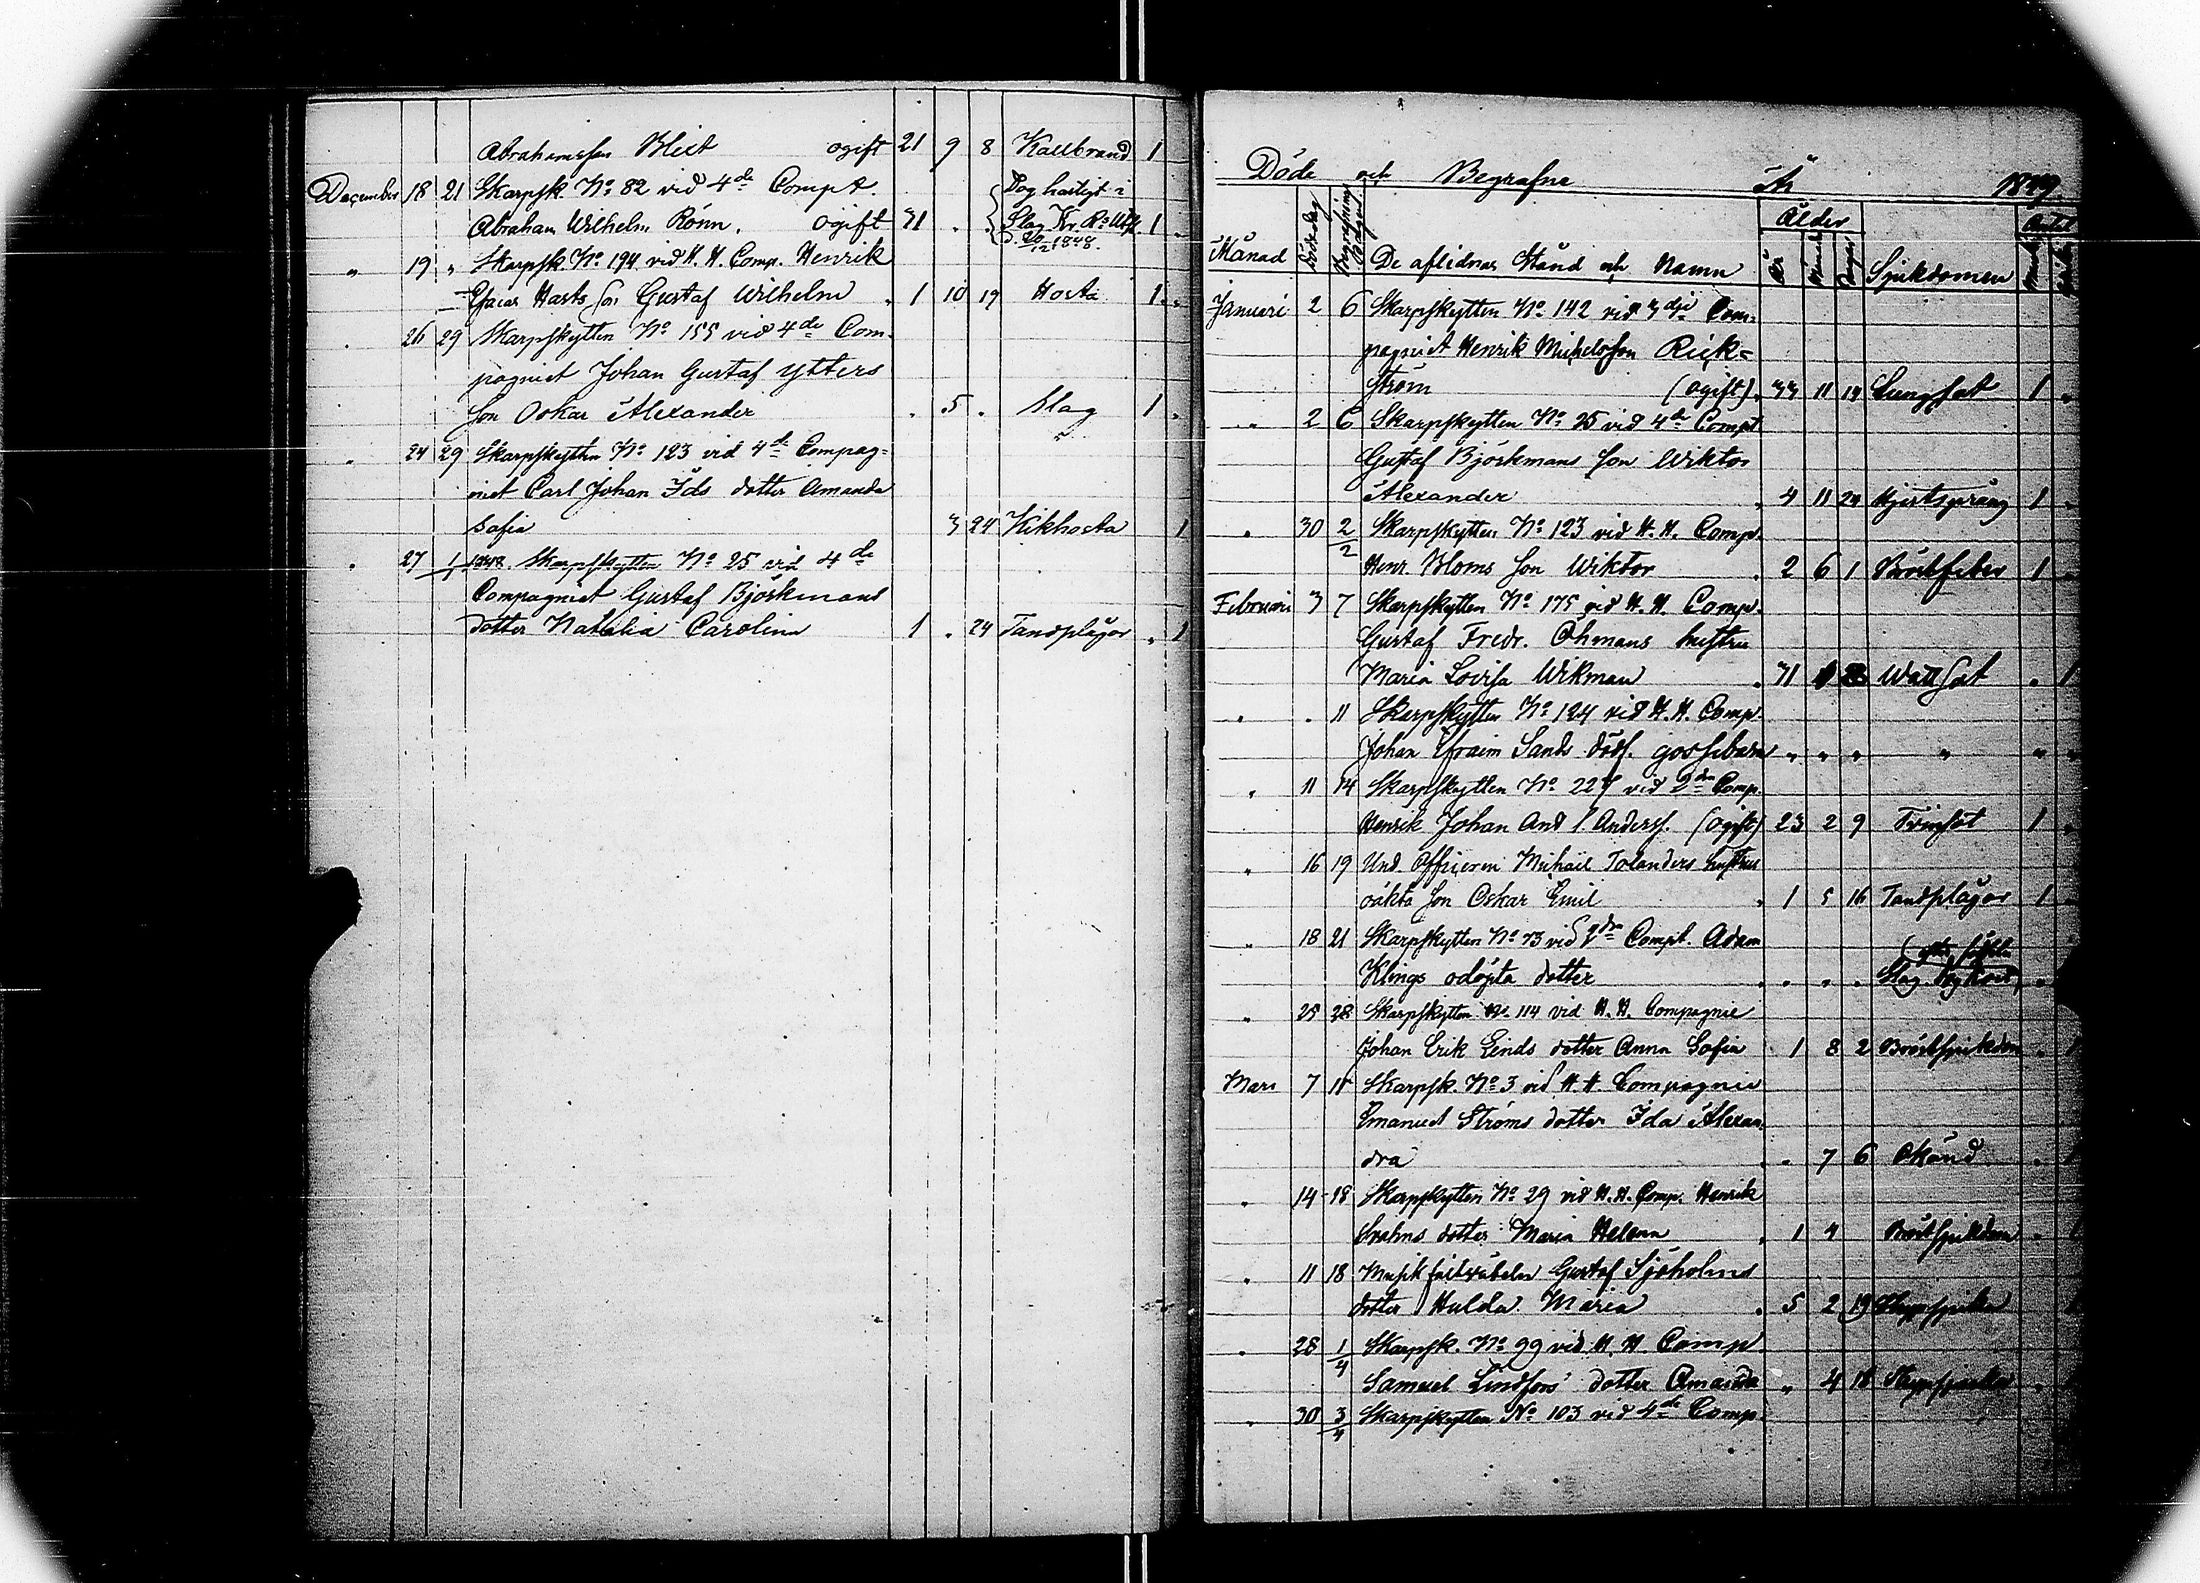 Abrahamsson Blixt ogift 21 9 8 Kallbrand 1
December 18 21 Skarpsk. No 82 vid 4de Compt. Dog hastigt i
Abraham Wilhelm Rönn. ogift 31 . . Slag 1 .
20/12 1848.
" 19 " Skarpsk. No 194 vid H. H. Comp. Henrik
Hasts son Gustaf Wilhelm . 1 10 19 Hosta 1 .
. 26 29 Skarpskytten No 155 vid 4de Com-
pagniet Johan Gustaf Ytters
son Oskar Alexander . 5 . Slag 1 .
. 24 29 Skarpskytten No 123 vid 4de Compag=
niet Carl Johan Ids dotter Amanda
Sofia 3 24 Kikhosta 1
. 27 1/1 Skarpskytten No 25 vid 4de
Compagniet Gustaf Björkmans
dotter Natalia Carolina 1 . 24 Tandplågor . 1
Döde och Begrafne År 1849.
Månad Dödsdag Begrafnings dagen De aflidnas Stånd och Namn Ålder År Månader Dagar Sjukdomen Antal
Januari 2 6 Skarpskytten No 142 vid 3dje Com=
pagniet Henrik Michelsson Rick=
ström (ogift) . 33 11 19 Lungsot 1 .
. 2 6 Skarpskytten No 25 vid 4de Compt
Gustaf Björkmans son Wiktor
Alexander . 4 11 24 Hjertsprång 1 .
. 30 2/2 Skarpskytten No 123 vid H. H. Comp.
Henr. Bloms son Wiktor . 2 6 1 Bröstfeber 1 .
Februari 3 7 Skarpskytten No 175 vid H. H. Comp.
Gustaf Fredr. Öhmans hustru
Maria Lovisa Wikman . 31 Wattsot . 1
" . 11 Skarpskytten No 124 vid H. H. Comp.
Johan Efraim Sands dödf. gossebarn " " " " " "
" 11 14 Skarpskytten No 229 vid 2dra Comp.
Henrik Johan And Anderss. (ogift) 23 2 9 Tvinsot 1 .
" 16 19 Und. Officeren Michail Tolanders hustrus
oäkta son Oskar Emil . 1 5 16 Tandplågor 1 .
" 18 21 Skarpskytten No 73 vid 2dra Compt. Adam
Klings odöpta dotter . . . . Slag .
" 25 28 Skarpskytten No 114 vid H. H. Compagnie
Johan Erik Linds dotter Anna Sofia . 1 8 2 Bröstsjukdom . 1
Mars 7 11 Skarpsk. No 3 vid H. H Compagnie
Emanuel Ströms dotter Ida Alexan
dra . . 7 6 Okänd . 1
" 14 18 Skarpskytten No 29 vid H. H. Comp. Henrik
dotter Maria Helena . 1 4 Bröstsjukdom . 1
" 11 18 Gustaf Sjöholms
dotter Hulda Maria . 5 2 19 Strypsjuka 1
. 28 1/4 Skarpsk. No 99 vid H. H Comp
Samuel Lindfors' dotter Amanda " 4 18 Strypsjuka . 1
. 30 3/4 Skarpskytten No 103 vid 4de Comp.